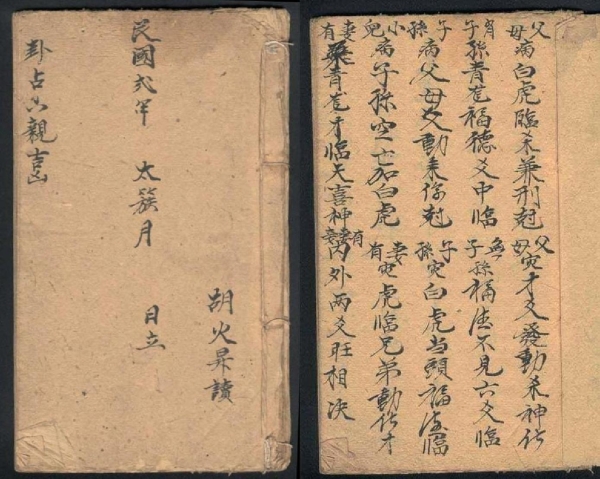 胡火昇讀
民國弍年 太簇月 日立
卦占六親吉凶
父母病白虎臨杀兼刑尅
父母灾才爻發動杀神化
肖子孫青竜福德爻中臨
無子孫福德不見六爻臨
子孫病父母爻動来傷尅
子孫灾白虎当頭福德臨
小兒病子孫空亡加白虎
妻有灾虎臨兄弟動化才
妻有青竜才臨天喜神
有内外两爻旺相决